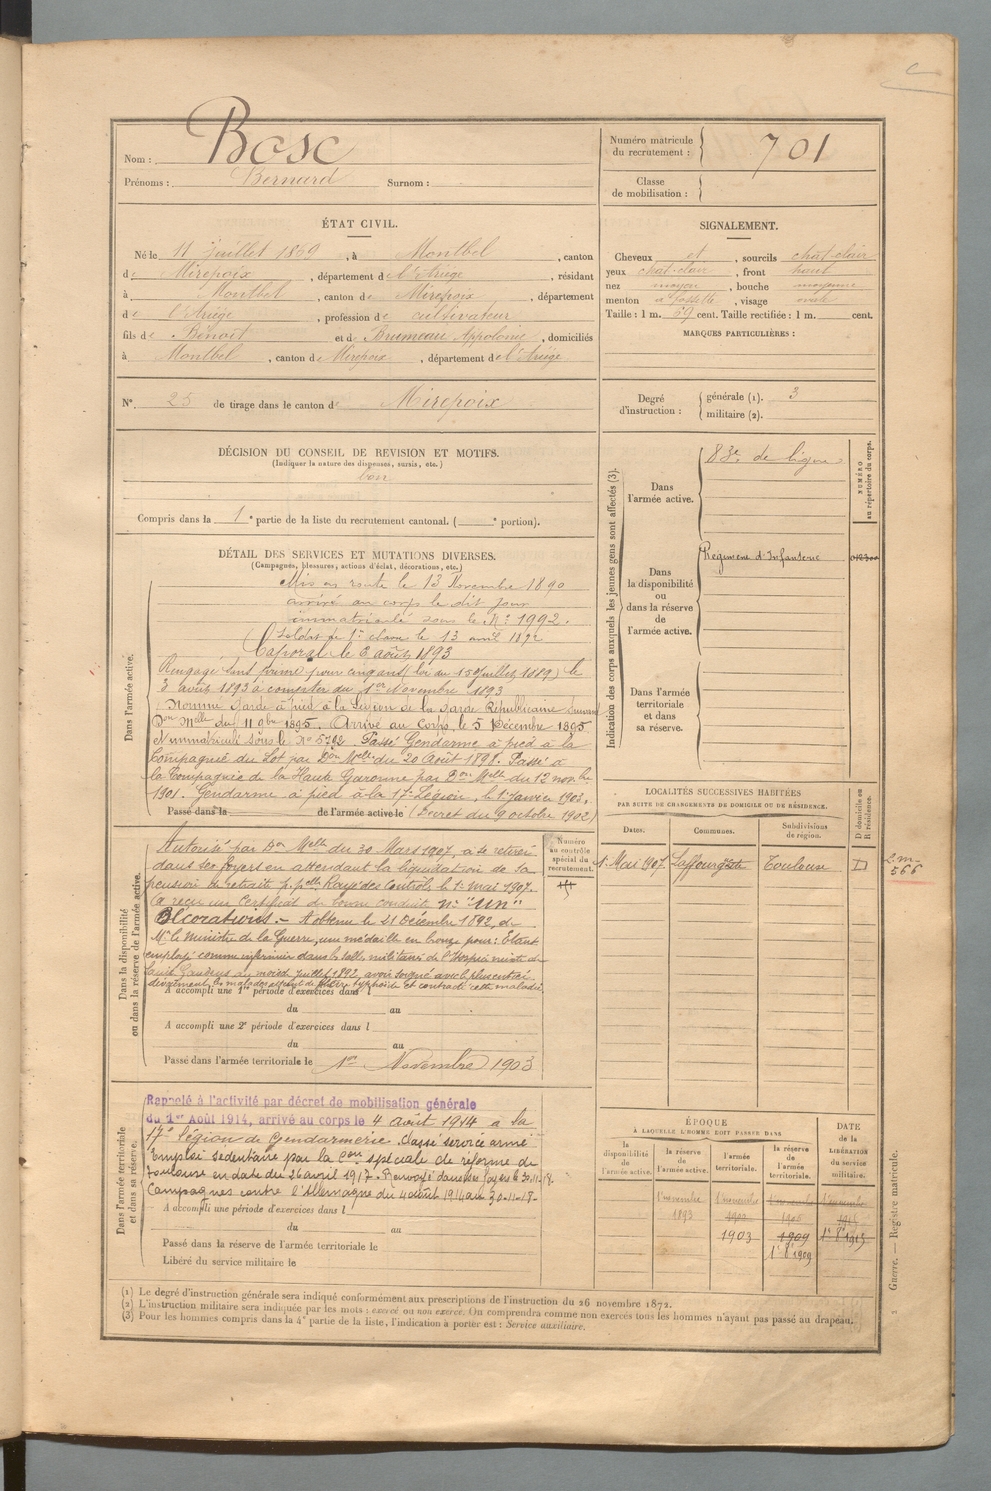 Nom : Bosc
Prénoms : Bernard Surnom :
Numéro matricule du recrutement : 701
Classe de mobilisation :
ÉTAT CIVIL.
Né le 11 Juillet 1869, à Montbel, canton
de Mirepoix, département de l'Ariège, résidant
à Montbel, canton de Mirepoix, département
de l'Ariège, profession de cultivateur
fils de Benoit et de Brumeau Appolonie, domiciliés
à Montbel, canton de Mirepoix, département de l'Ariège
N° 25 de tirage dans le canton de Mirepoix
SIGNALEMENT.
Cheveux et, sourcils chat-clair
yeux chat-clair, front haut
nez moyen, bouche moyenne
menton à fossette, visage ovale
Taille : 1 m. 59 cent. Taille rectifiée : 1 m. cent.
MARQUES PARTICULIÈRES :
Degré d'instruction : générale (1). 3
militaire (2).
DÉCISION DU CONSEIL DE REVISION ET MOTIFS.
(Indiquer la nature des dispenses, sursis, etc.)
bon
Compris dans la 1e partie de la liste du recrutement cantonal. ( e portion).
DÉTAIL DES SERVICES ET MUTATIONS DIVERSES.
(Campagnes, blessures, actions d'éclat, décorations, etc.)
Dans l'armée active.
Mis en route le 13 Novembre 1890
arrivé au corps le dit jour
immatriculé sous le N° 1992.
Soldat de 1e classe le 13 avril 1892
Caporal le 3 août 1893
Rengagé sans prime pour cinq ans (loi du 15 Juillet 1889) le
3 août 1893 à compter du 1er Novembre 1893
Nommé Garde à pied à la Légion de la Garde Républicaine suivant
Don Melle du 11 9bre 1895. Arrivé au Corps le 5 Décembre 1895
N immatriculé sous le No 5792 Passé Gendarme à pied à la
Compagnie du Lot par Don Melle du 20 Août 1898. Passé à
la Compagnie de la Haute Garonne par Don Melle du 12 novbre
1901. Gendarme à pied à la 17e Légion, le 1er Janvier 1903.
Passé dans la de l'armée active le (Décret du 9 octobre 1902)
Dans la disponibilité ou dans la réserve de l'armée active.
Autorisé par Don Melle du 30 Mars 1907, à se retirer
dans ses foyers en attendant la liquidation de sa
pension de retraite p. pelle Rayé des Contrôles le 1er mai 1907.
a reçu un Certificat de bonne conduite n° "un"
Décorations. - A obtenu le 21 Décembre 1892, de
Mr le Ministre de la Guerre, une médaille en bronze pour : Etant
employé comme infirmier dans la salle militaire de l'Hospice mixte de
Saint Gaudens au mois de Juillet 1892, avoir soigné avec le plus entier
dévouement, les malades atteints de fièvre typhoïde et contracté cette maladie.
A accompli une 1re période d'exercices dans l
du au
A accompli une 2e période d'exercices dans l
du au
Passé dans l'armée territoriale le 1er Novembre 1903
Numéro au contrôle spécial du recrutement.
Dans l'armée territoriale et dans sa réserve.
Rappelé à l'activité par décret de mobilisation générale
du 1er Août 1914, arrivé au corps le 4 août 1914 à la
17e Légion de Gendarmerie. Classé service armé
Emploi sédentaire par la Con spéciale de réforme de
Toulouse en date du 26 avril 1917. Renvoyé dans ses foyers le 30-11-18.
Campagnes contre l'Allemagne du 4 août 1914 au 30-11-18-
A accompli une période d'exercices dans l
du au
Passé dans la réserve de l'armée territoriale le
Libéré du service militaire le
Indication des corps auxquels les jeunes gens sont affectés (3).
NUMÉRO au répertoire du corps.
Dans l'armée active. 83e de ligne
Dans la disponibilité ou dans la réserve de l'armée active. Régiment d'Infanterie
Dans l'armée territoriale et dans sa réserve.
LOCALITÉS SUCCESSIVES HABITÉES
PAR SUITE DE CHANGEMENTS DE DOMICILE OU DE RÉSIDENCE.
Dates. Communes. Subdivisions de région. D domicile ou R résidence.
1er Mai 1907. Toulouse D
ÉPOQUE
À LAQUELLE L'HOMME DOIT PASSER DANS
la disponibilité de l'armée active. la réserve de l'armée active. l'armée territoriale. la réserve de l'armée territoriale. DATE de la LIBÉRATION du service militaire.
1 novembre 1 novembre 1 novembre 1 novembre
1893 1903
1903 1909 1er 8e 1915
1er 8e 1909
Guerre. — Registre matricule.
(1) Le degré d'instruction générale sera indiqué conformément aux prescriptions de l'instruction du 26 novembre 1872.
(2) L'instruction militaire sera indiquée par les mots : exercé ou non exercé. On comprendra comme non exercés tous les hommes n'ayant pas passé au drapeau.
(3) Pour les hommes compris dans la 4e partie de la liste, l'indication à porter est : Service auxiliaire.